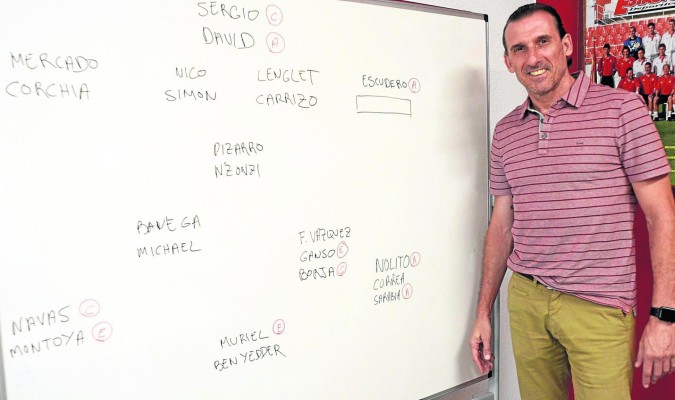 SERGIO C
DAVID A
MERCADO
CORCHIA
NICO
SIMON
LENGLET
CARRIZO
ESCUDERO A
PIZARRO
NZONZI
BANEGA
MICHAEL
F. VÁZQUEZ
GANSO E
BORJA C
NOLITO A
CORREA
SARABIA A
NAVAS C
MONTOYA E
MURIEL F
BEN YEDDER